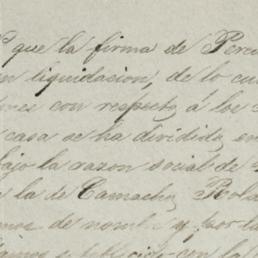 que la firma de Perei
en liquidacion, de lo cu
ones con respecto á los
casa se ha dividido en
bajo la razon social de
la de Camacho, Rold
de nombre y, por la